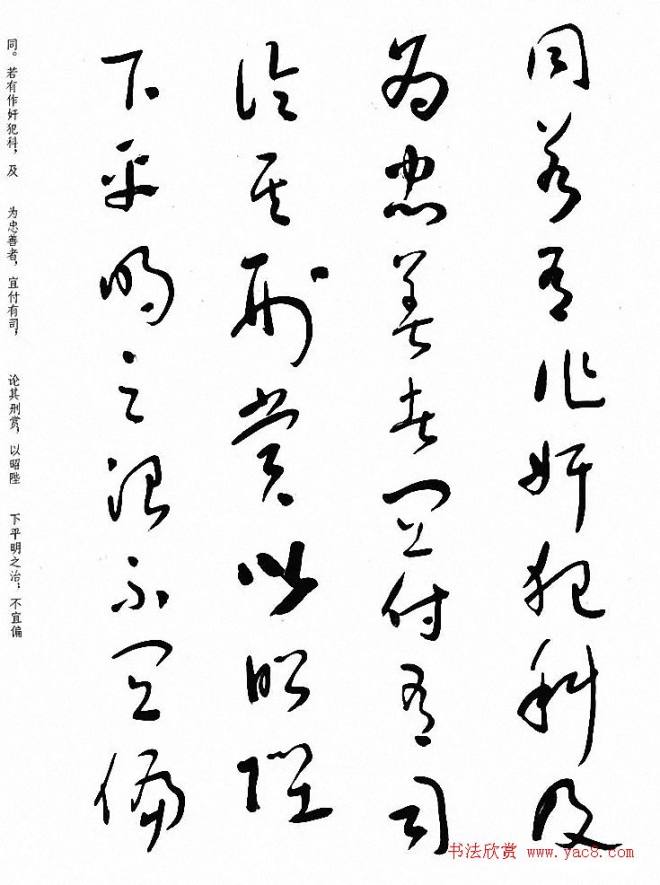 同若有作奸犯科及
为忠善者宜付有司
论其刑赏以昭陛
下平明之治不宜偏
同。若有作奸犯科，及 为忠善者，宜付有司， 论其刑赏，以昭陛 下平明之治；不宜偏
书法欣赏 www.yac8.com